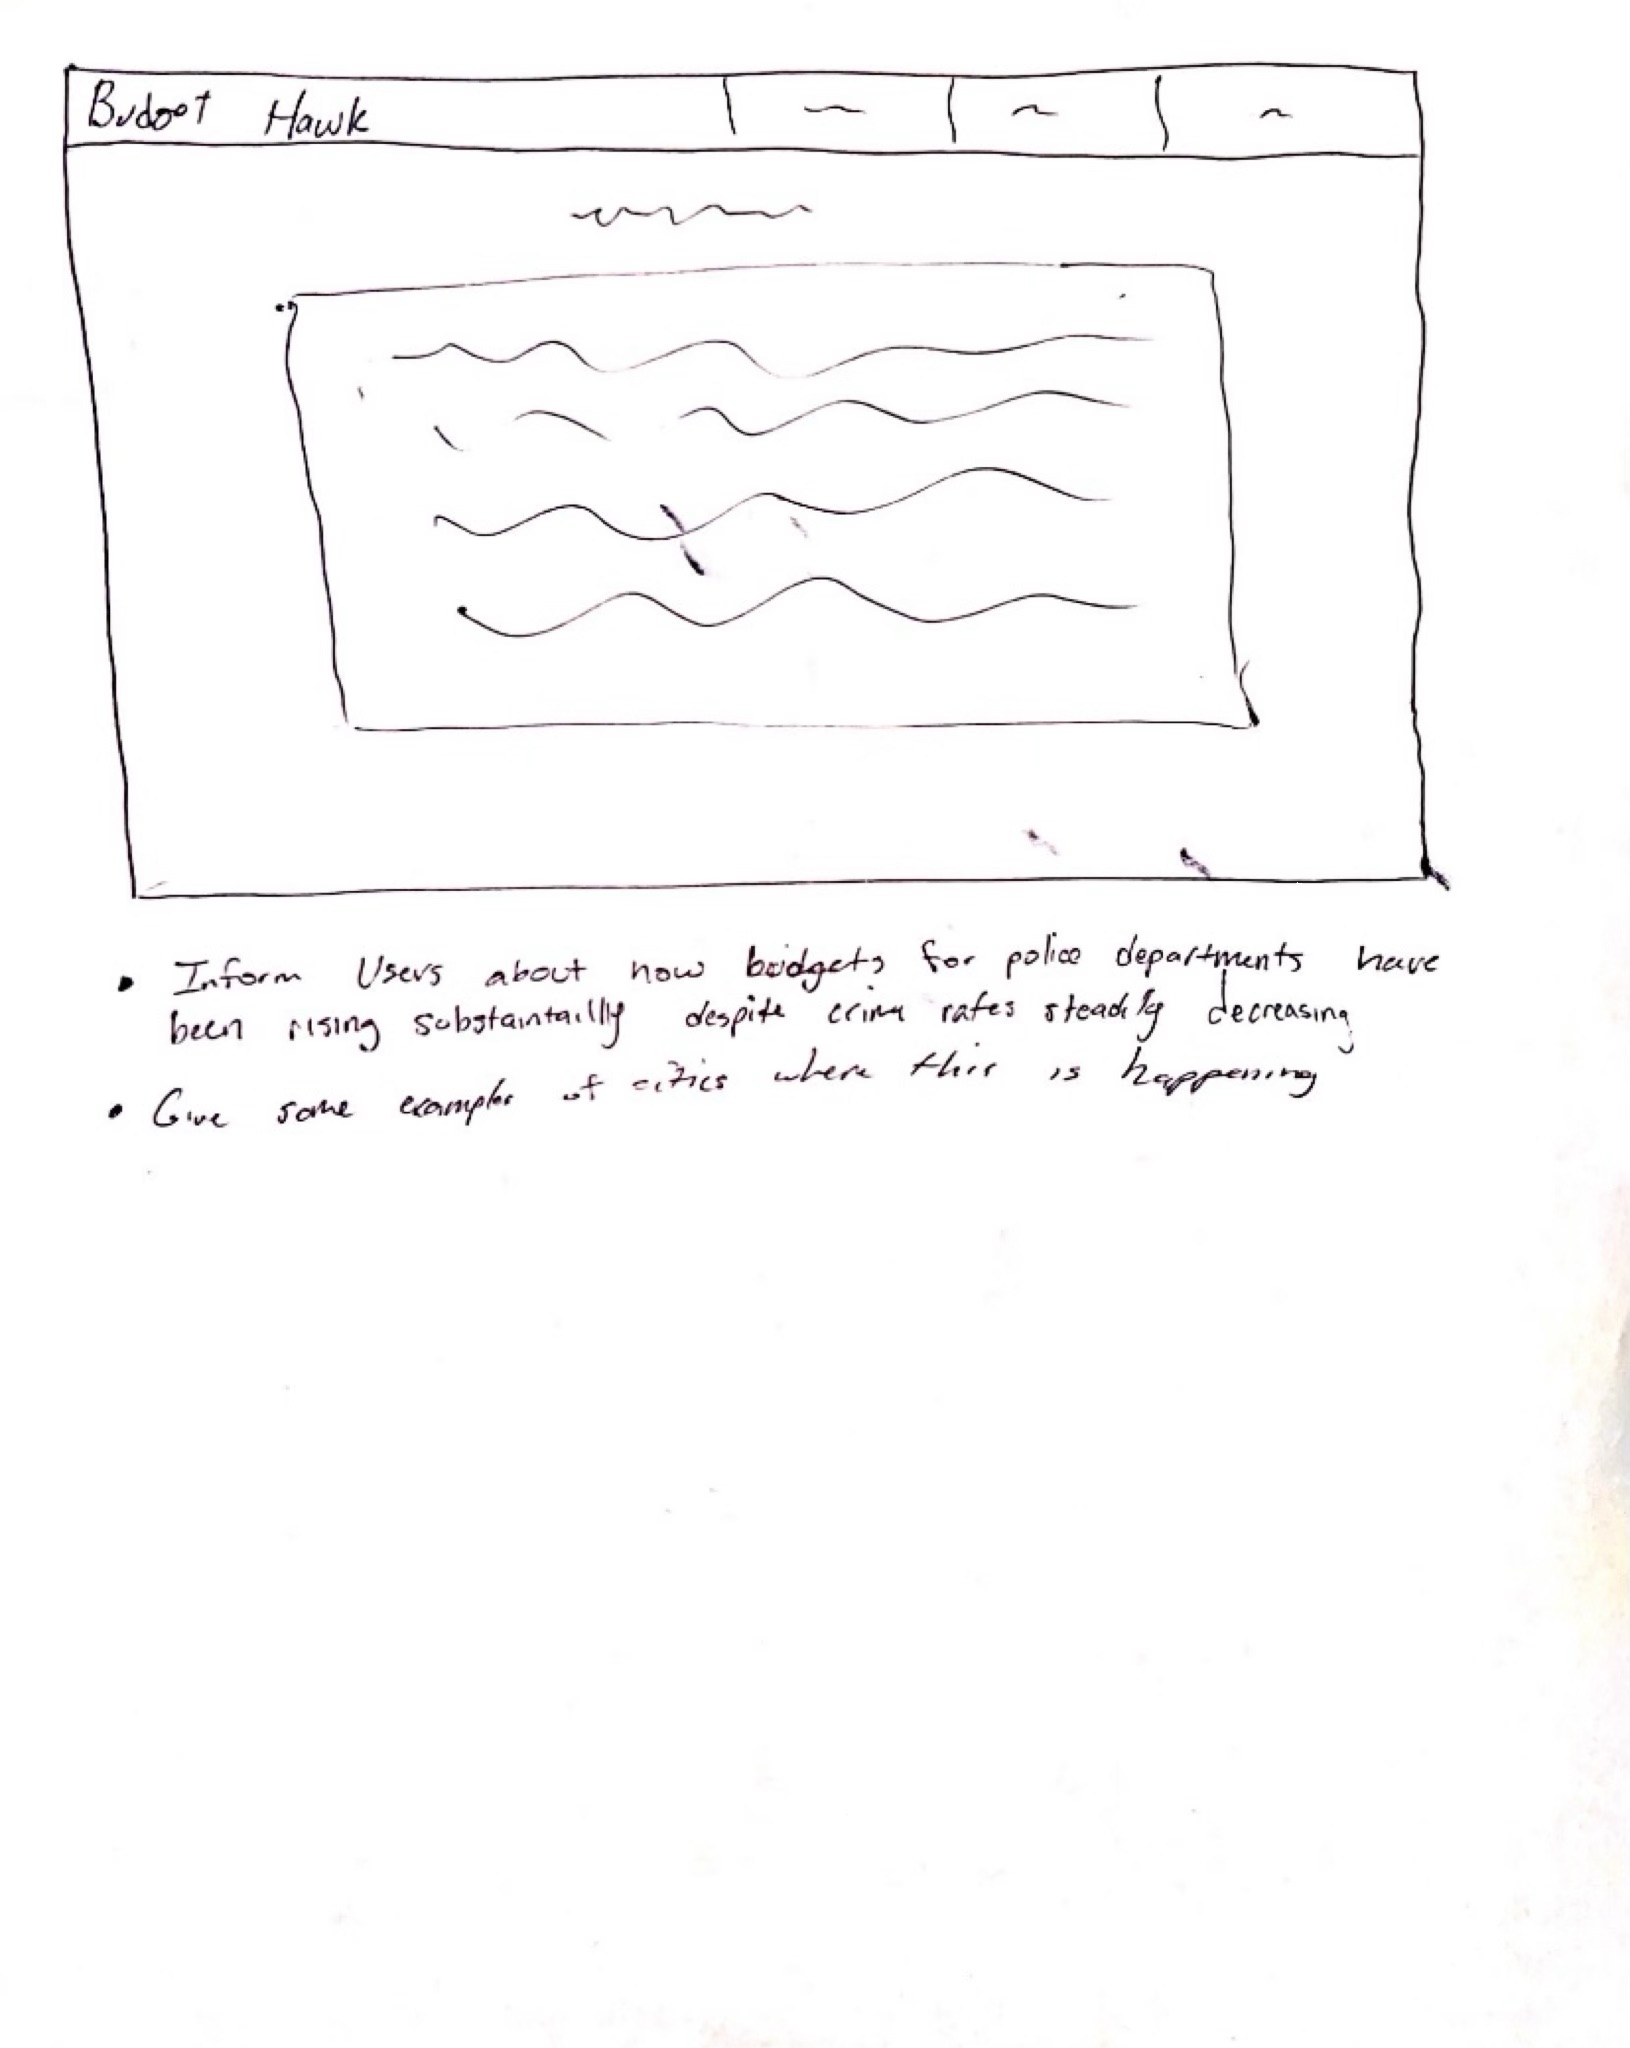 Budget Hawk
• Inform Users about how budgets for police departments have
been rising substaintailly despite crime rates steadily decreasing
• Give some examples of cities where this is happening